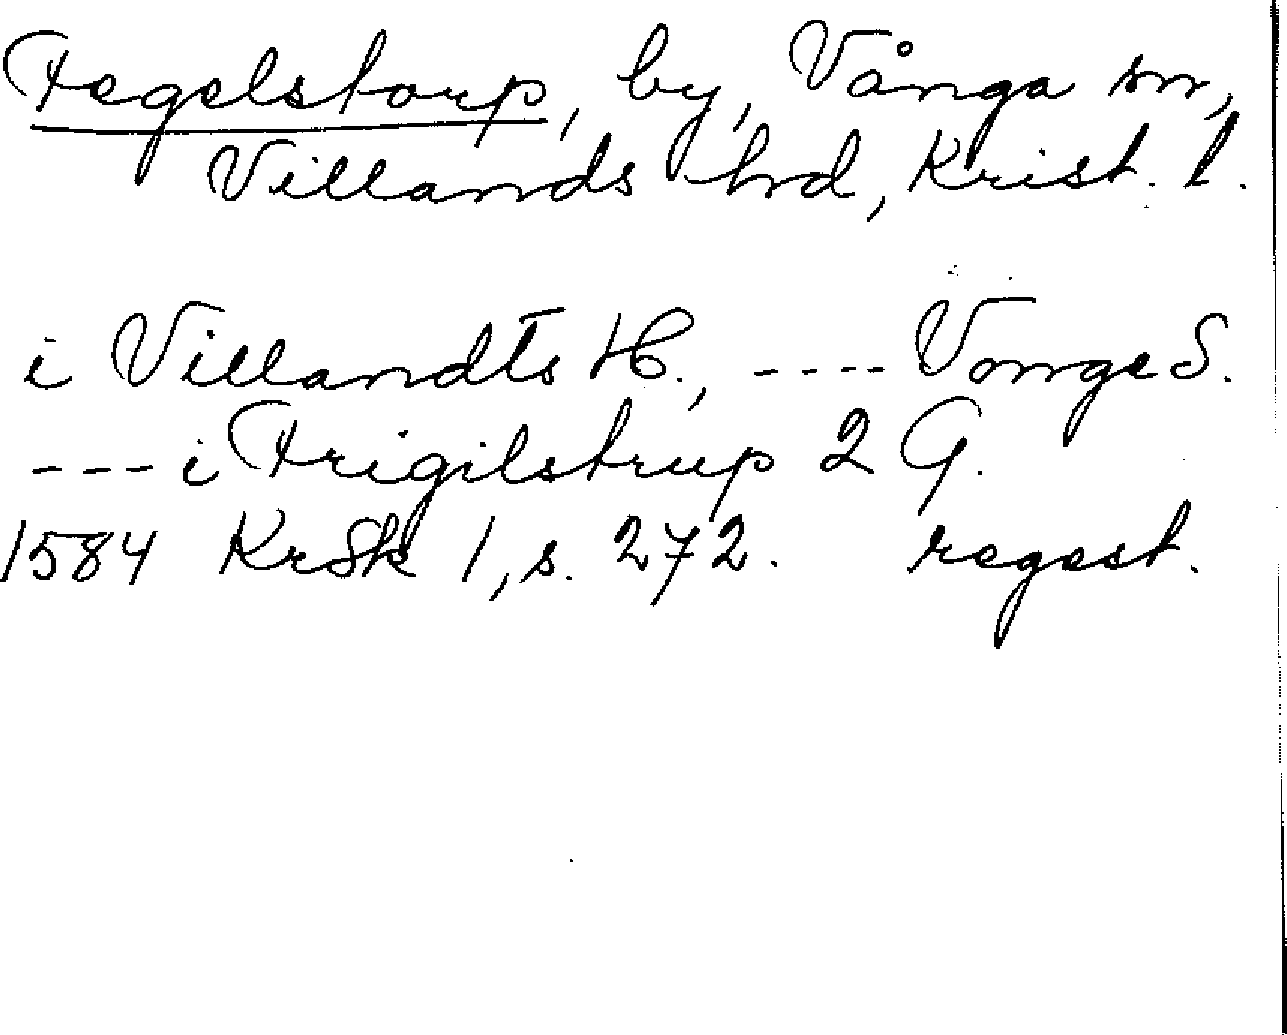 Fegelstorp, by, Vånga sn,
Villands hrd, Krist. l.
i Villandts H., ---- Vonge S.
--- i Frigilstrup 2 G.
1584 KrSk 1, s. 272. regest.